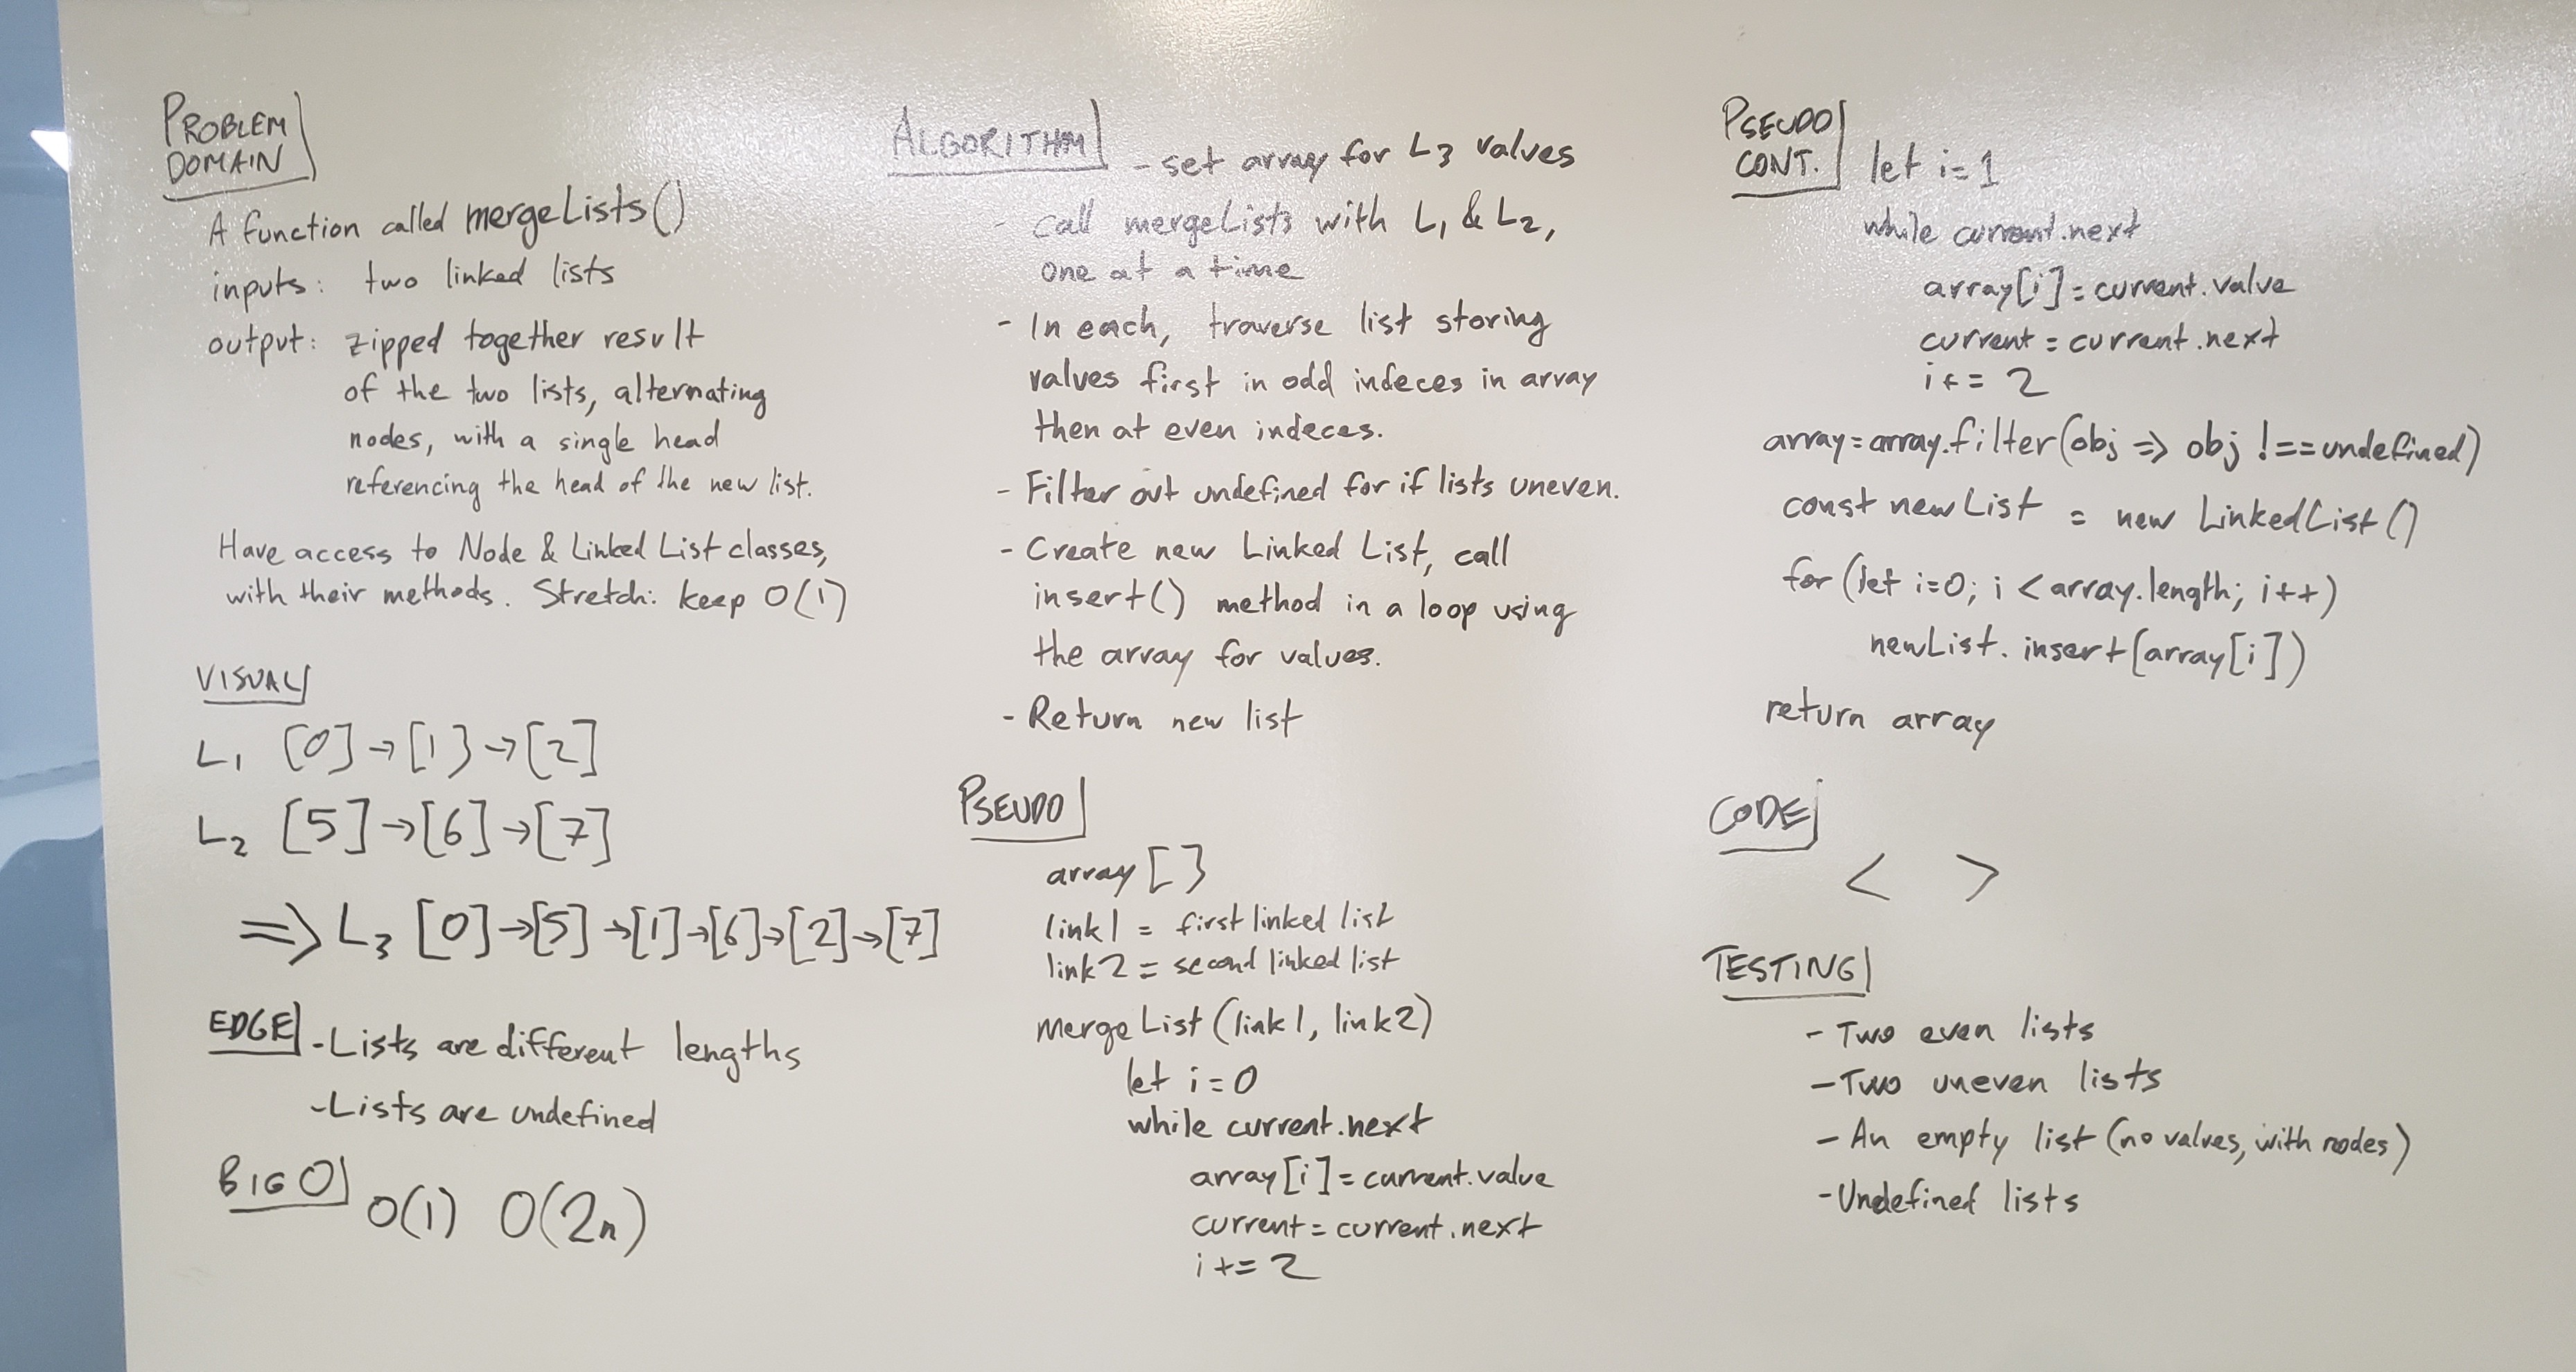 PROBLEM
DOMAIN
A function called mergeLists()
inputs: two linked lists
output: zipped together result
of the two lists, alternating
nodes, with a single head
referencing the head of the new list.
Have access to Node & Linked List classes,
with their methods. Stretch: keep O(1)
VISUAL
L1 [0]→[1]→[2]
L2 [5]→[6]→[7]
⇒ L3 [0]→[5]→[1]→[6]→[2]→[7]
EDGE
-Lists are different lengths
-Lists are undefined
BIG O
O(1) O(2n)
ALGORITHM
- set array for L3 values
- Call mergeLists with L1 & L2,
one at a time
- In each, traverse list storing
values first in odd indeces in array
then at even indeces.
- Filter out undefined for if lists uneven.
- Create new Linked List, call
insert() method in a loop using
the array for values.
- Return new list
PSEUDO
array []
link1 = first linked list
link2 = second linked list
mergeList(link1, link2)
let i=0
while current.next
array[i]=current.value
current=current.next
i+=2
PSEUDO
CONT.
let i=1
while current.next
array[i]=current.value
current=current.next
i+=2
array=array.filter(obj => obj !==undefined)
const newList = new LinkedList()
for (let i=0; i<array.length; i++)
newList.insert(array[i])
return array
CODE
< >
TESTING
- Two even lists
- Two uneven lists
- An empty list (no values, with nodes)
- Undefined lists